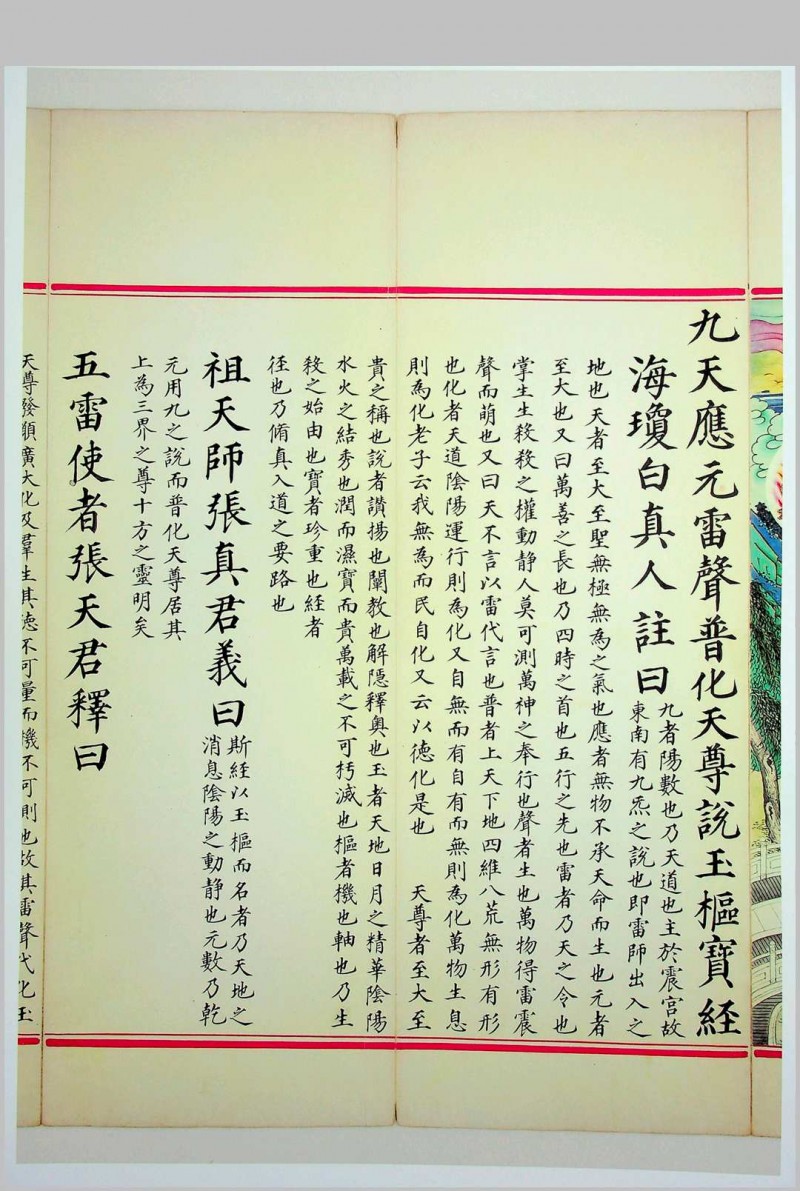 九天應元雷聲普化天尊說玉樞寶經
海瓊白真人註曰
九者陽數也乃天道也主於震宮故
東南有九炁之說也即雷師出入之
地也天者至大至聖無極無為之氣也應者無物不承天命而生也元者
至大也又曰萬善之長也乃四時之首也五行之先也雷者乃天之令也
掌生生殺殺之權動靜人莫可測萬神之奉行也聲者生也萬物得雷震
聲而萌也又曰天不言以雷代言也普者上天下地四維八荒無形有形
也化者天道陰陽運行則為化又自無而有自有而無則為化萬物生息
則為化老子云我無為而民自化又云以德化是也 天尊者至大至
貴之稱也說者讚揚也闡教也解隱釋奧也玉者天地日月之精華陰陽
水火之結秀也潤而濕寶而貴萬載之不可朽滅也樞者機也軸也乃生
殺之始由也寶者珍重也経者
徑也乃脩真入道之要路也
祖天師張真君義曰
斯経以玉樞而名者乃天地之
消息陰陽之動靜也元數乃乾
元用九之說而普化天尊居其
上為三界之尊十方之靈明矣
五雷使者張天君釋曰
天尊發願廣大化及羣生其德不可量而機不可則也故其雷聲代化玉